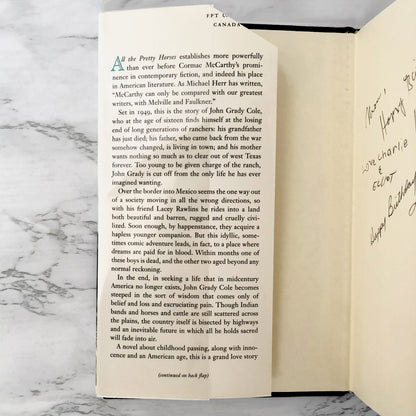 FPT U
CANADA
All the Pretty Horses establishes more powerfully
than ever before Cormac McCarthy's promi-
nence in contemporary fiction, and indeed his place
in American literature. As Michael Herr has written,
"McCarthy can only be compared with our greatest
writers, with Melville and Faulkner."
Set in 1949, this is the story of John Grady Cole,
who at the age of sixteen finds himself at the losing
end of long generations of ranchers: his grandfather
has just died; his father, who came back from the war
somehow changed, is living in town; and his mother
wants nothing so much as to clear out of west Texas
forever. Too young to be given charge of the ranch,
John Grady is cut off from the only life he has ever
imagined wanting.
Over the border into Mexico seems the one way out
of a society moving in all the wrong directions, so
with his friend Lacey Rawlins he rides into a land
both beautiful and barren, rugged and cruelly civil-
ized. Soon enough, by happenstance, they acquire a
hapless younger companion. But this idyllic, some-
times comic adventure leads, in fact, to a place where
dreams are paid for in blood. Within months one of
these boys is dead, and the other two aged beyond any
normal reckoning.
In the end, in seeking a life that in midcentury
America no longer exists, John Grady Cole becomes
steeped in the sort of wisdom that comes only of
belief and loss and excruciating pain. Though Indian
bands and horses and cattle are still scattered across
the plains, the country itself is bisected by highways
and an inevitable future in which all he holds sacred
will fade into air.
A novel about childhood passing, along with inno-
cence and an American age, this is a grand love story
(continued on back flap)
Mom!
Happy
Love Charlie
&
Elliot
Happy Birthday